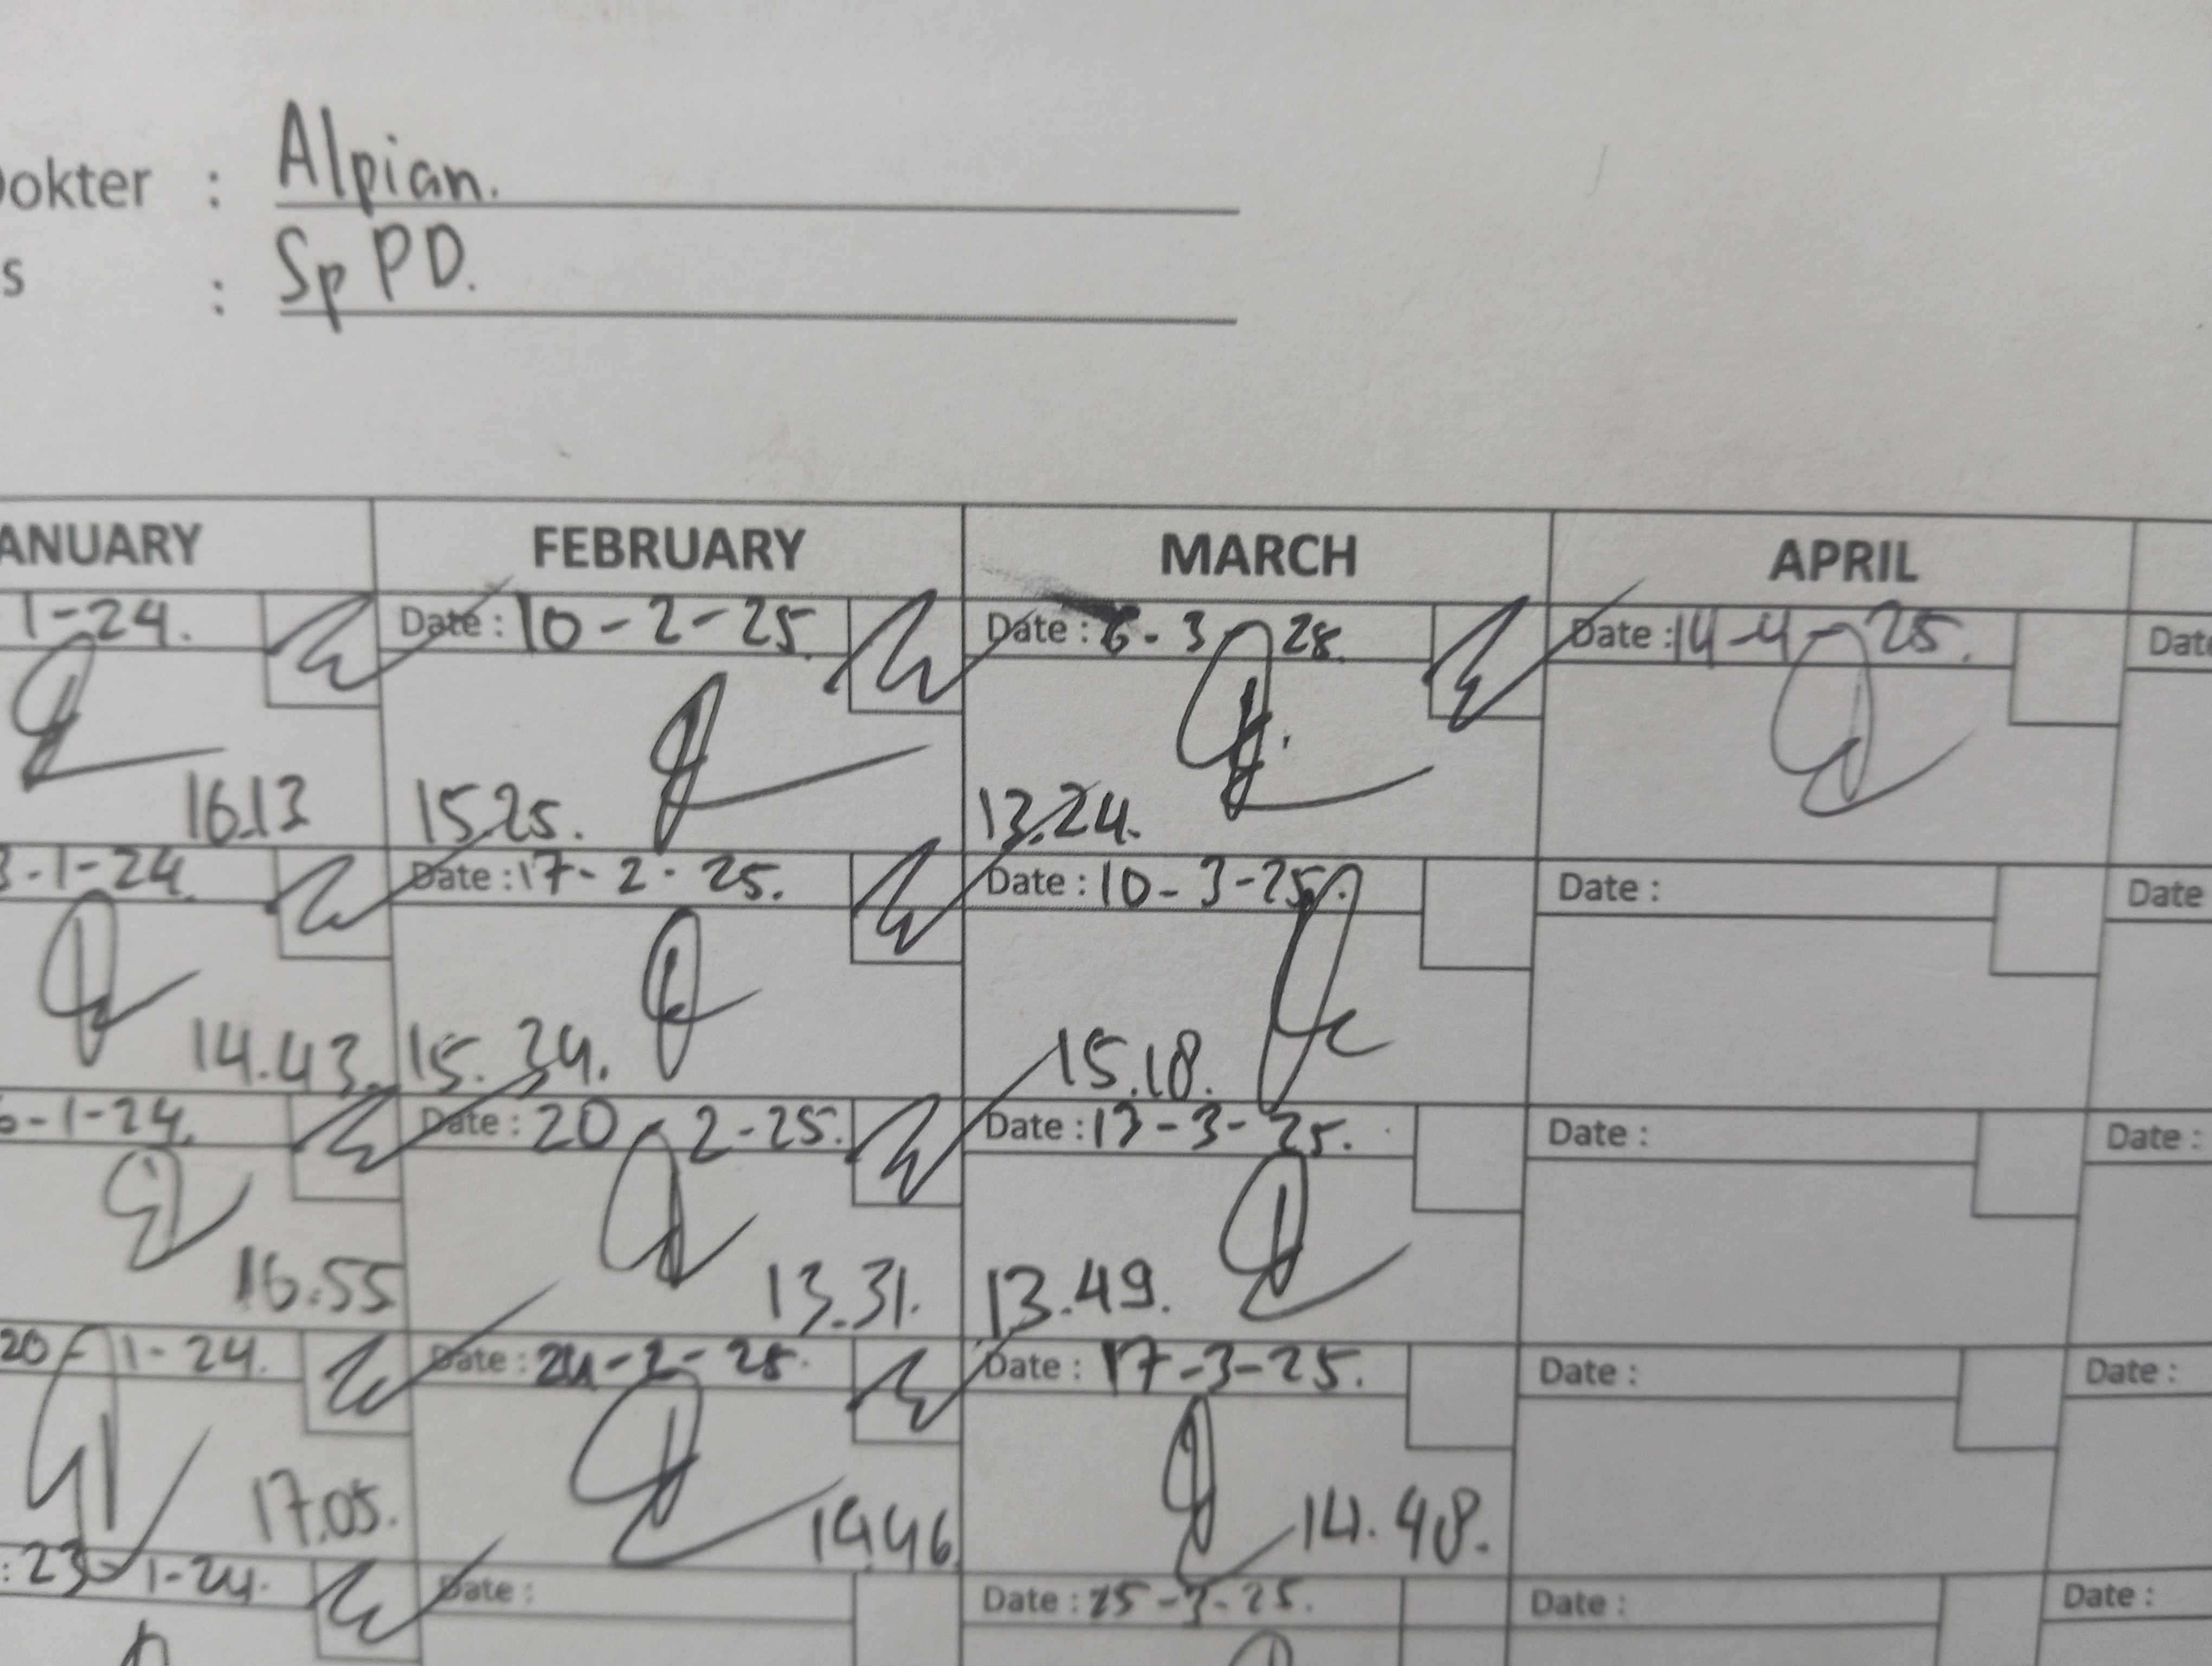 Dokter : Alpian.
s : Sp PD.
ANUARY FEBRUARY MARCH APRIL
1-24. Date : 10-2-25. Date : 6-3-25. Date : 14-4-25. Date
16.13 15.25. 13.24.
3-1-24. Date : 17-2-25. Date : 10-3-25. Date : Date
14.43. 15.34. 15.18.
6-1-24. Date : 20-2-25. Date : 13-3-25. Date : Date :
16.55 13.31. 13.49.
20-1-24. Date : 24-2-25. Date : 17-3-25. Date : Date :
17.05. 14.46. 14.48.
: 23-1-24. Date : Date : 25-3-25. Date : Date :